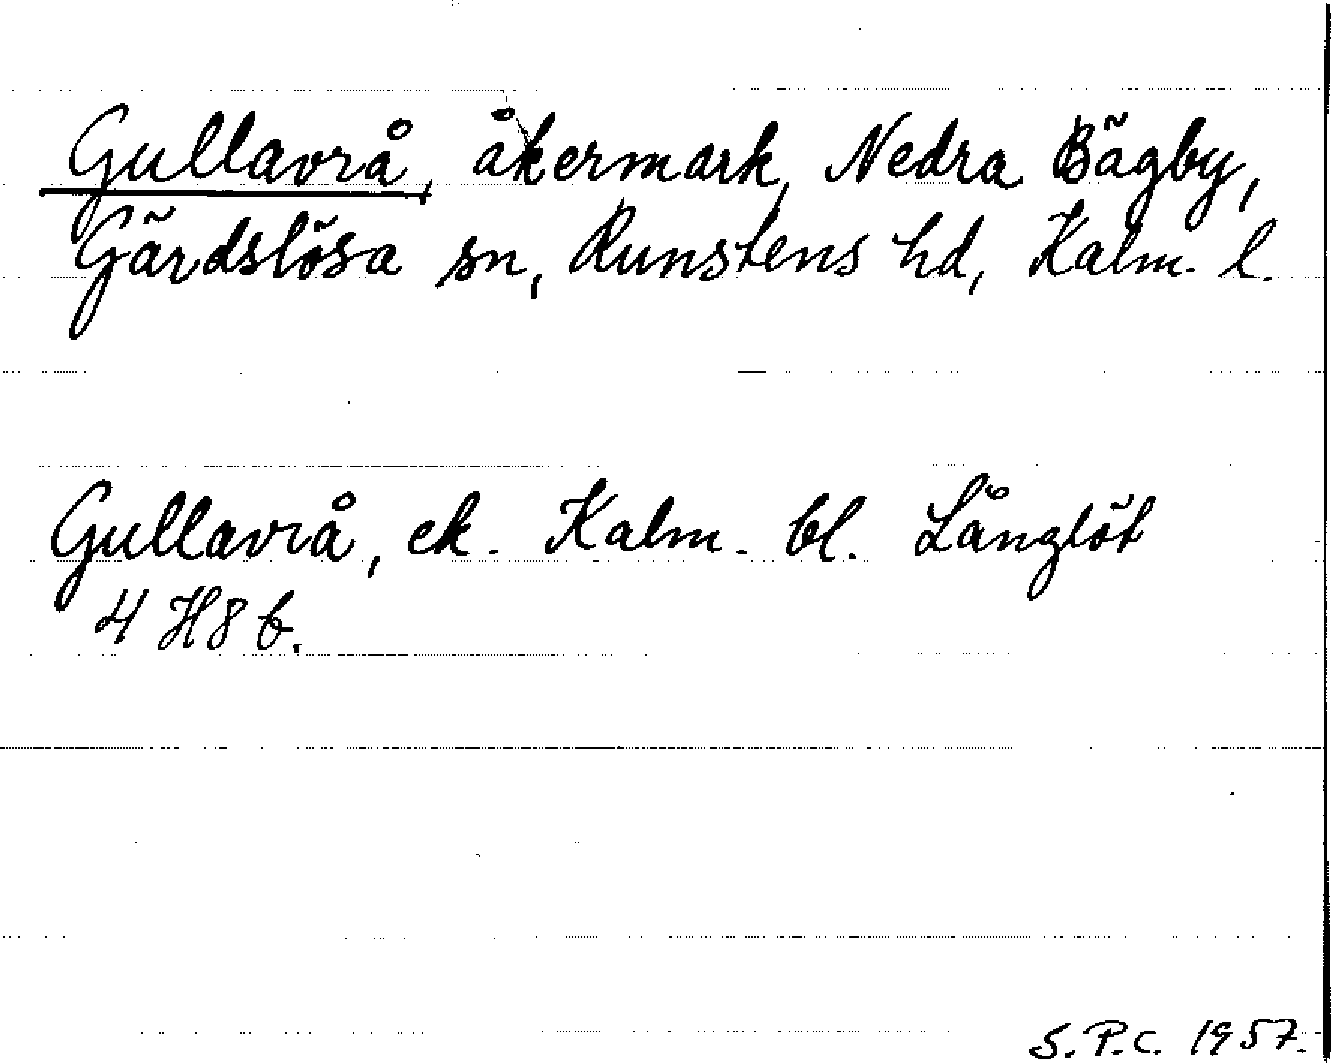 Gullavrå, åkermark, Nedra Bägby,
Gärdslösa sn, Runstens hd, Kalm. l.
Gullavrå, ek. Kalm. bl. Långlöt
4 H8 b.
S.P.C. 1957.